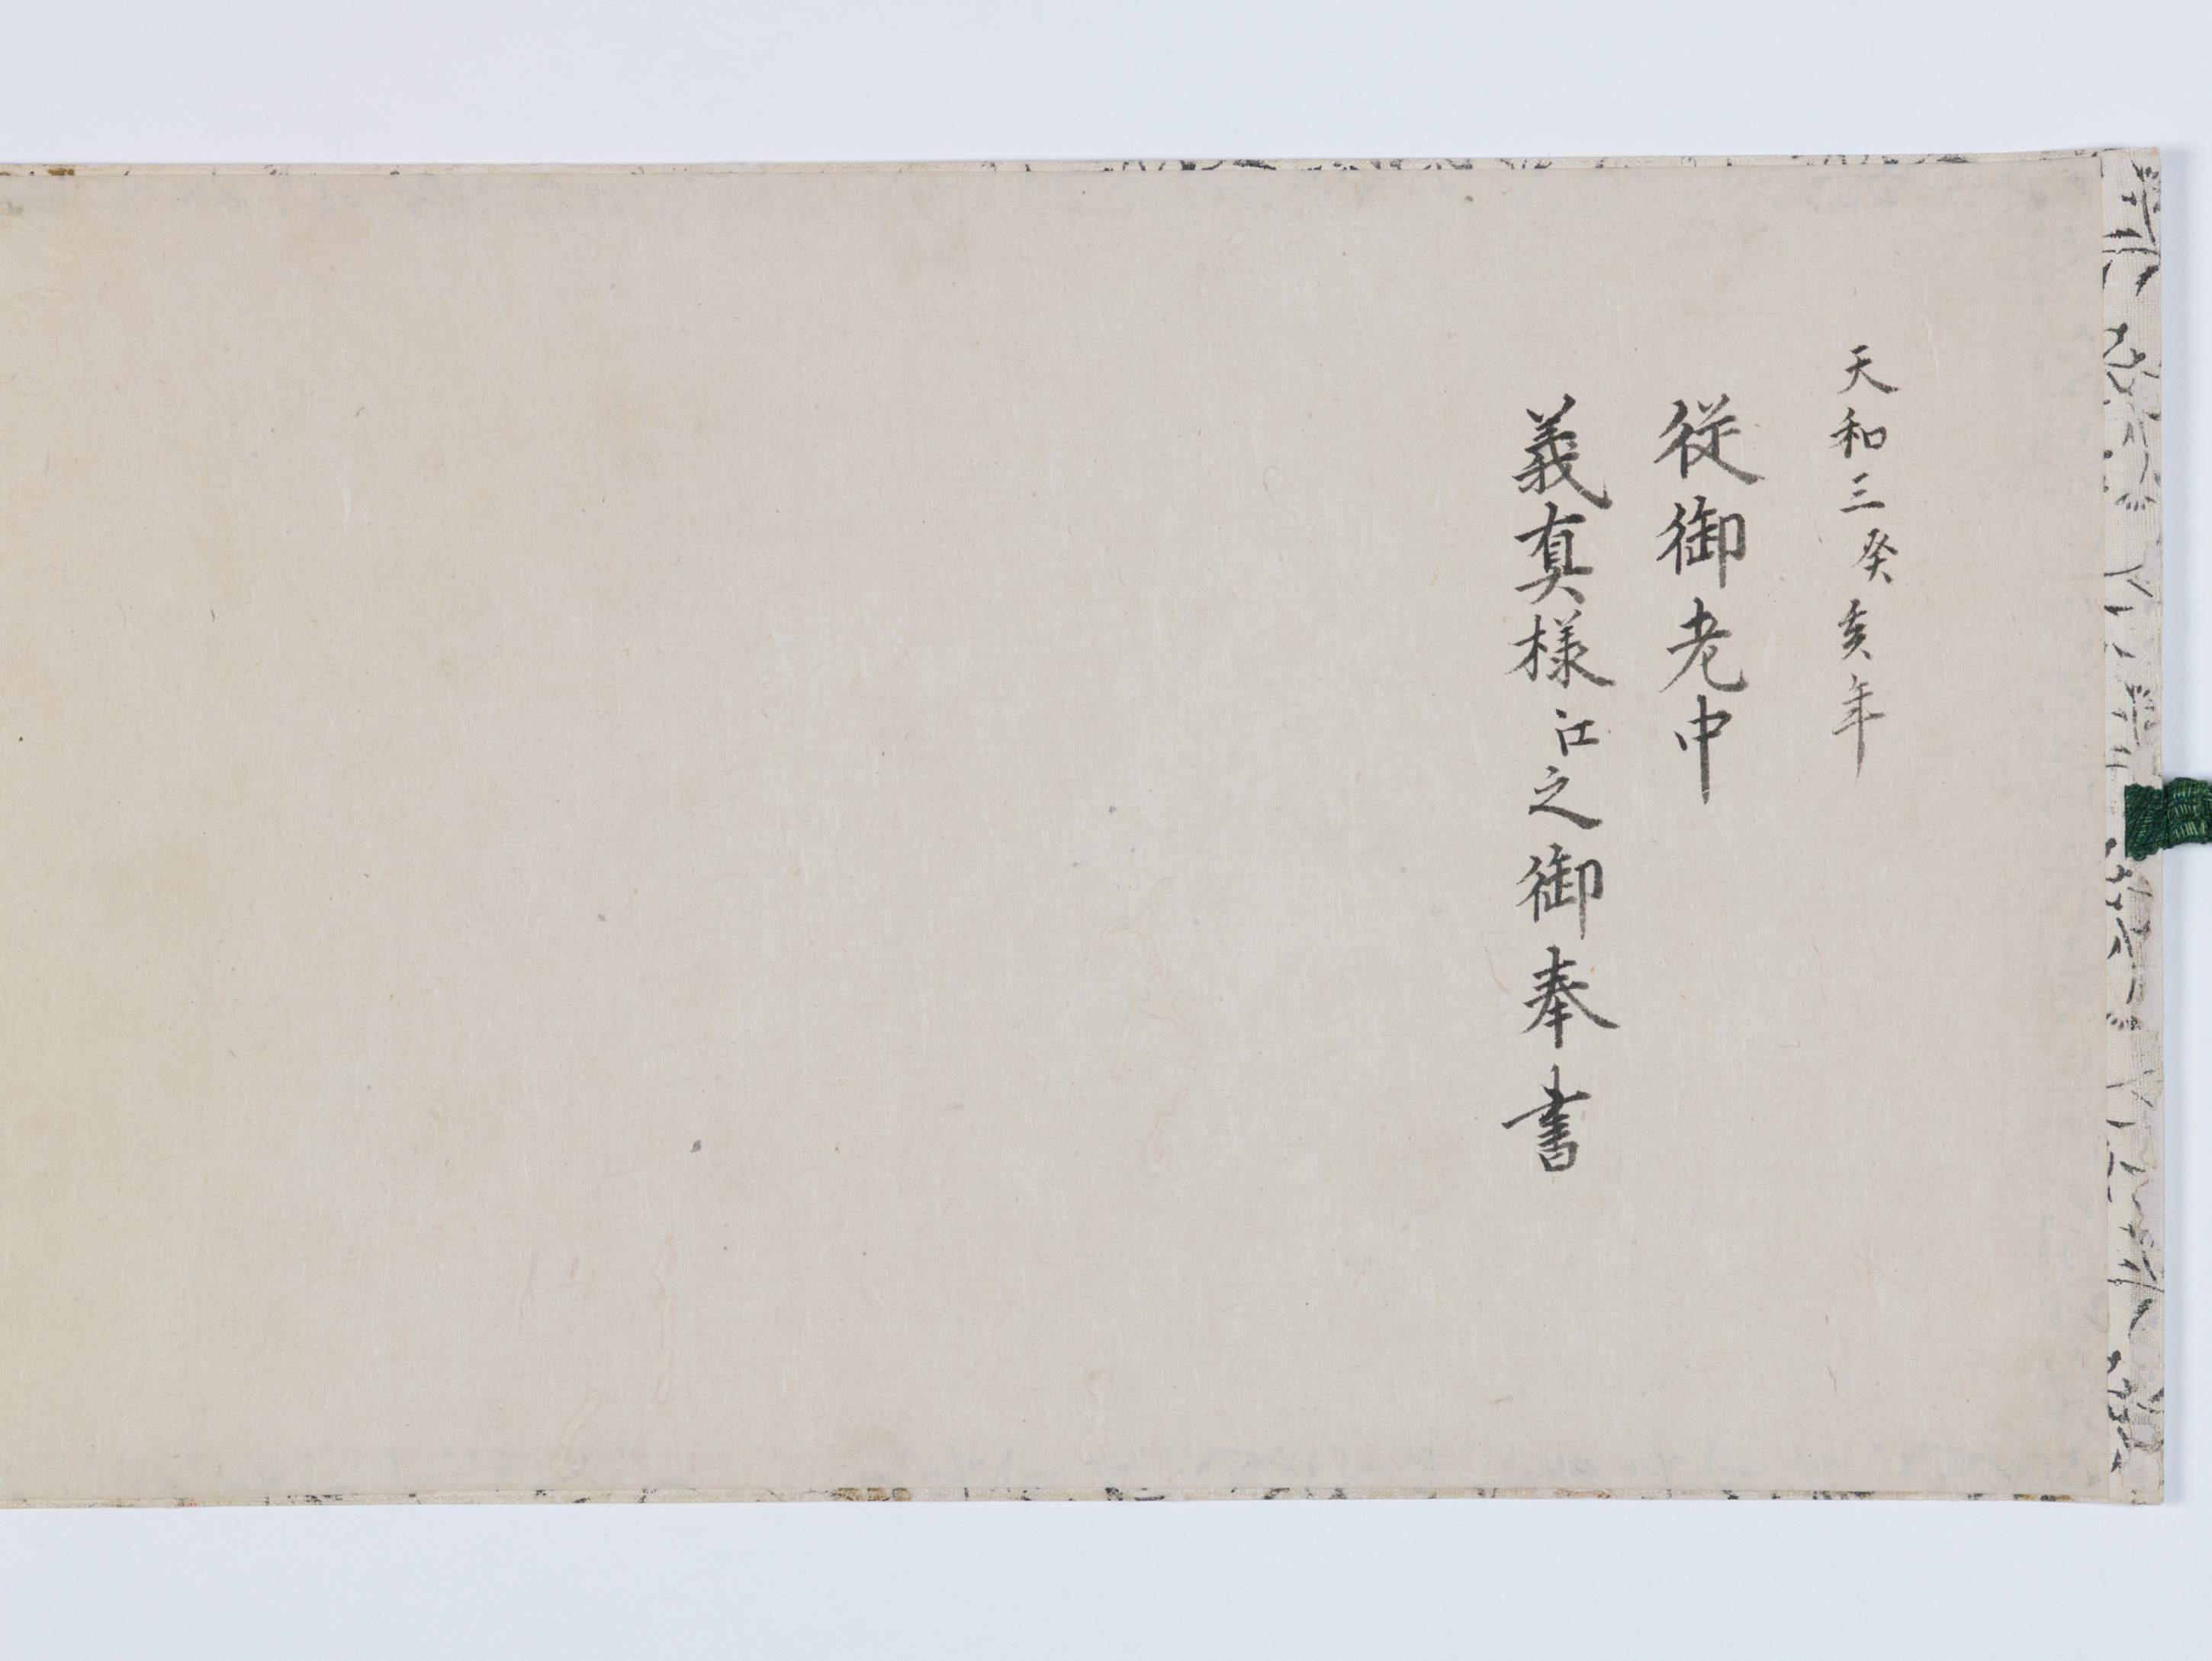 天和三癸亥年
従御老中
義真様江之御奉書